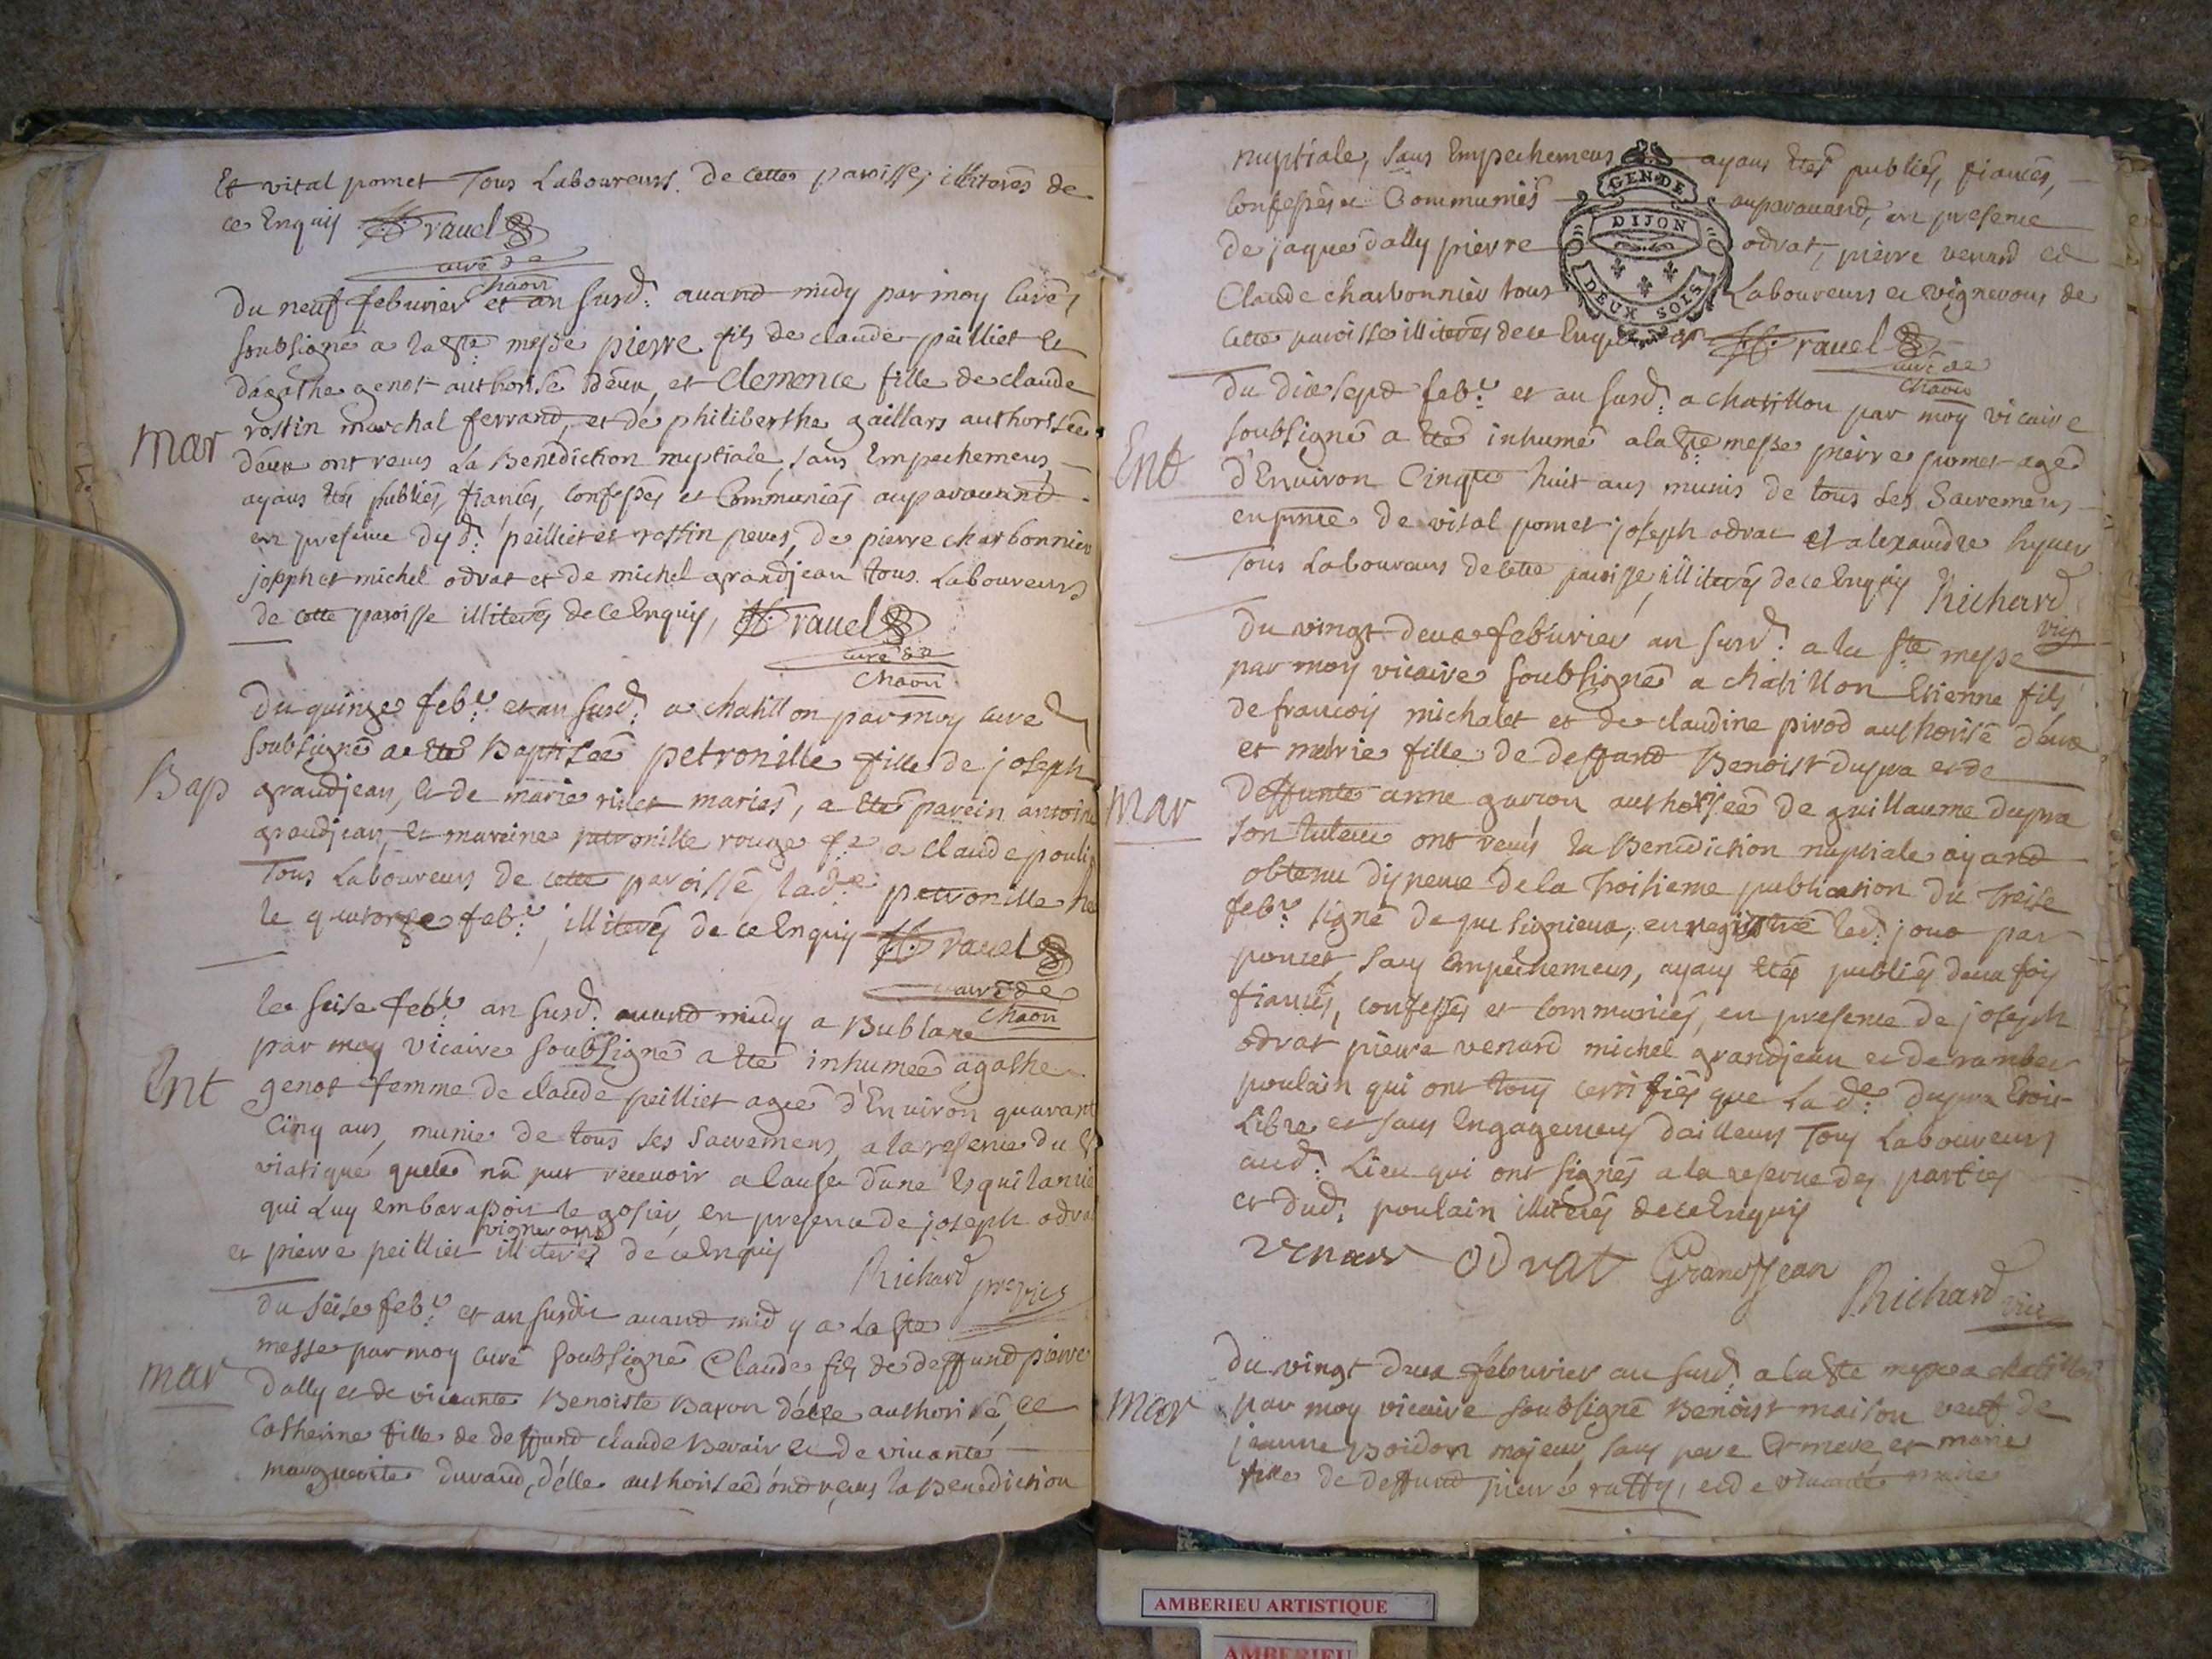 Et vital pomet Tous Laboureurs. de cette paroisse, illiterés de
ce Enquis Ravel
curé de
Chaon
Du neuf feburier et an susd: avand midy par moy curé,
soubsigné a la ste messe pierre fils de claude peilliet et
dagathe genot authorisé deux, et Clemence fille de claude
rostin marchal ferrand, et de philiberthe gaillars authorisée
Mar
deux ont receus La Benediction nuptiale, sans Empechemens,
ayans étés publiés, fiancés, confessés et Communiés auparavand
en presence dud: peilliet et rostin peres, de pierre charbonnier
joseph et michel odrat et de michel grandjean tous Laboureurs
de cette paroisse illiterés de ce Enquis, Ravel
curé de
Chaon
Du quinze feb: et an susd: a chatillon par moy curé
soubsigné a été Baptisée petronille fille de joseph
Bap
grandjean, et de marie maries, a été parein antoine
grandjean, et mareine petronille rouge fe a claude
Tous Laboureurs de cette paroisse, lade petronille
le quatorze feb:, illiterés de ce Enquis Ravel
curé de
Chaon
le seise feb: an susd: avand midy a Bublane
par moy vicaire soubsigné a été inhumée agathe
Ent
genot femme de claude peilliet agée d'Environ quarant
Cinq ans, munie de tous ses sacremens, a la reserve du
viatique quele na put recevoir a cause dune Esquilancie
qui Luy embarassoit le gosier, en presence de joseph odra
vignerons
et pierre peilliet illiterés de ce Enquis
Richard
Du seise feb: et an susdit avand midy a La ste
messe par moy curé soubsigné Claude fils de deffund pierre
mar
Dally et de vivante Benoiste Baron d'elle authorisé, et
Catherine fille de deffund claude et de vivante
marguerite durand, d'elle authorisée ond receus la Benediction
nuptiale, sans Empechemens ayans étés publiés, fiancés,
GEN. DE
DIJON
DEUX SOLS
confessés et Communiés auparavand, en presence
de jaque dally pierre odrat, pierre venard et
Claude charbonnier tous Laboureurs et vignerons de
cette paroisse illiterés de ce Ravel
curé de
Chaon
Du dix sept feb: et an susd: a chatillon par moy vicaire
soubsigné a été inhumé a la ste messe pierre pomet agé
Ent
d'Environ Cinqte huit ans munis de tous ses Sacremens
en pnce de vital pomet joseph odrat et alexandre
Tous Labourans de cette paroisse, illiterés de ce Enquis Richard
vic
Du vingt deux feburier an susd: a la ste messe
par moy vicaire soubsigné a chatillon Etienne fils
de francois michalet et de claudine pirod authorisé deux
et marie fille de deffand Benoist dupra et de
Mar
deffunte anne garion authorisée de guillaume dupra
son tuteur ont receus la Benediction nuptiale ayand
obtenu dispence de la troisieme publication du treise
feb: signé de enregistré led: jour par
poncet, sans Empechemens, ayans étés publiés deux fois
fiancés, confessés et communiés, en presence de joseph
odrat pierre venard michel grandjean et de rambert
poulain qui ont tous certifiés que La de: dupra Etoit
Libre et sans Engagemens dailleurs Tous Laboureurs
aud: Lieu qui ont signés a la reserve des parties
et dud: poulain illiterés de ce Enquis
venard odrat Grandjean
Richard vic
Du vingt deux feburier an susd: a la ste messe a chatillon
Mar
par moy vicaire soubsigné Benoist maison veuf de
jeanne Boidon majeur, sans pere Et mere, et marie
fille de deffund pierre ratty, et de vivante marie
AMBERIEU ARTISTIQUE
AMBERIEU